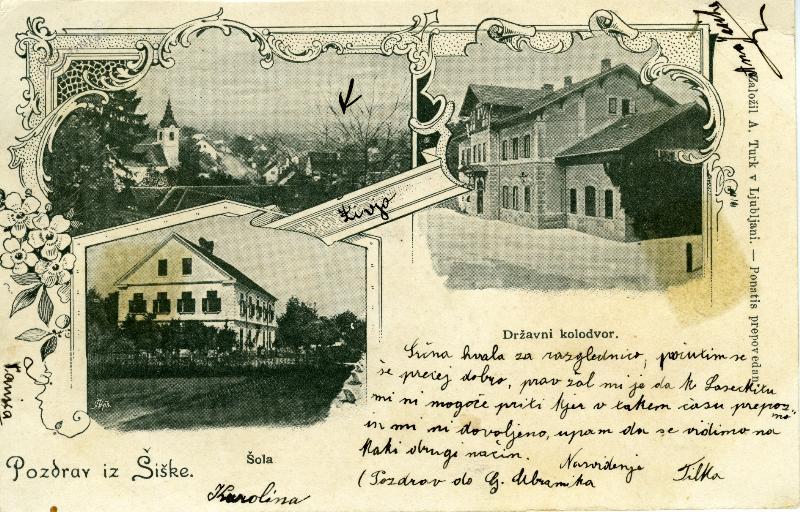 Živjo
Založil A. Turk v Ljubljani. — Ponatis prepovedan
Državni kolodvor.
Srčna hvala za razglednico, počutim se
še precej dobro, prav zal mi je da k
mi ni mogoče priti kjer v takem času prepozno
in mi ni dovoljeno, upam da se vidimo na
kaki druge način.
Nasvidenje
(Pozdrav do G. Tilka
Šola
Pozdrav iz Šiške.
Karolina